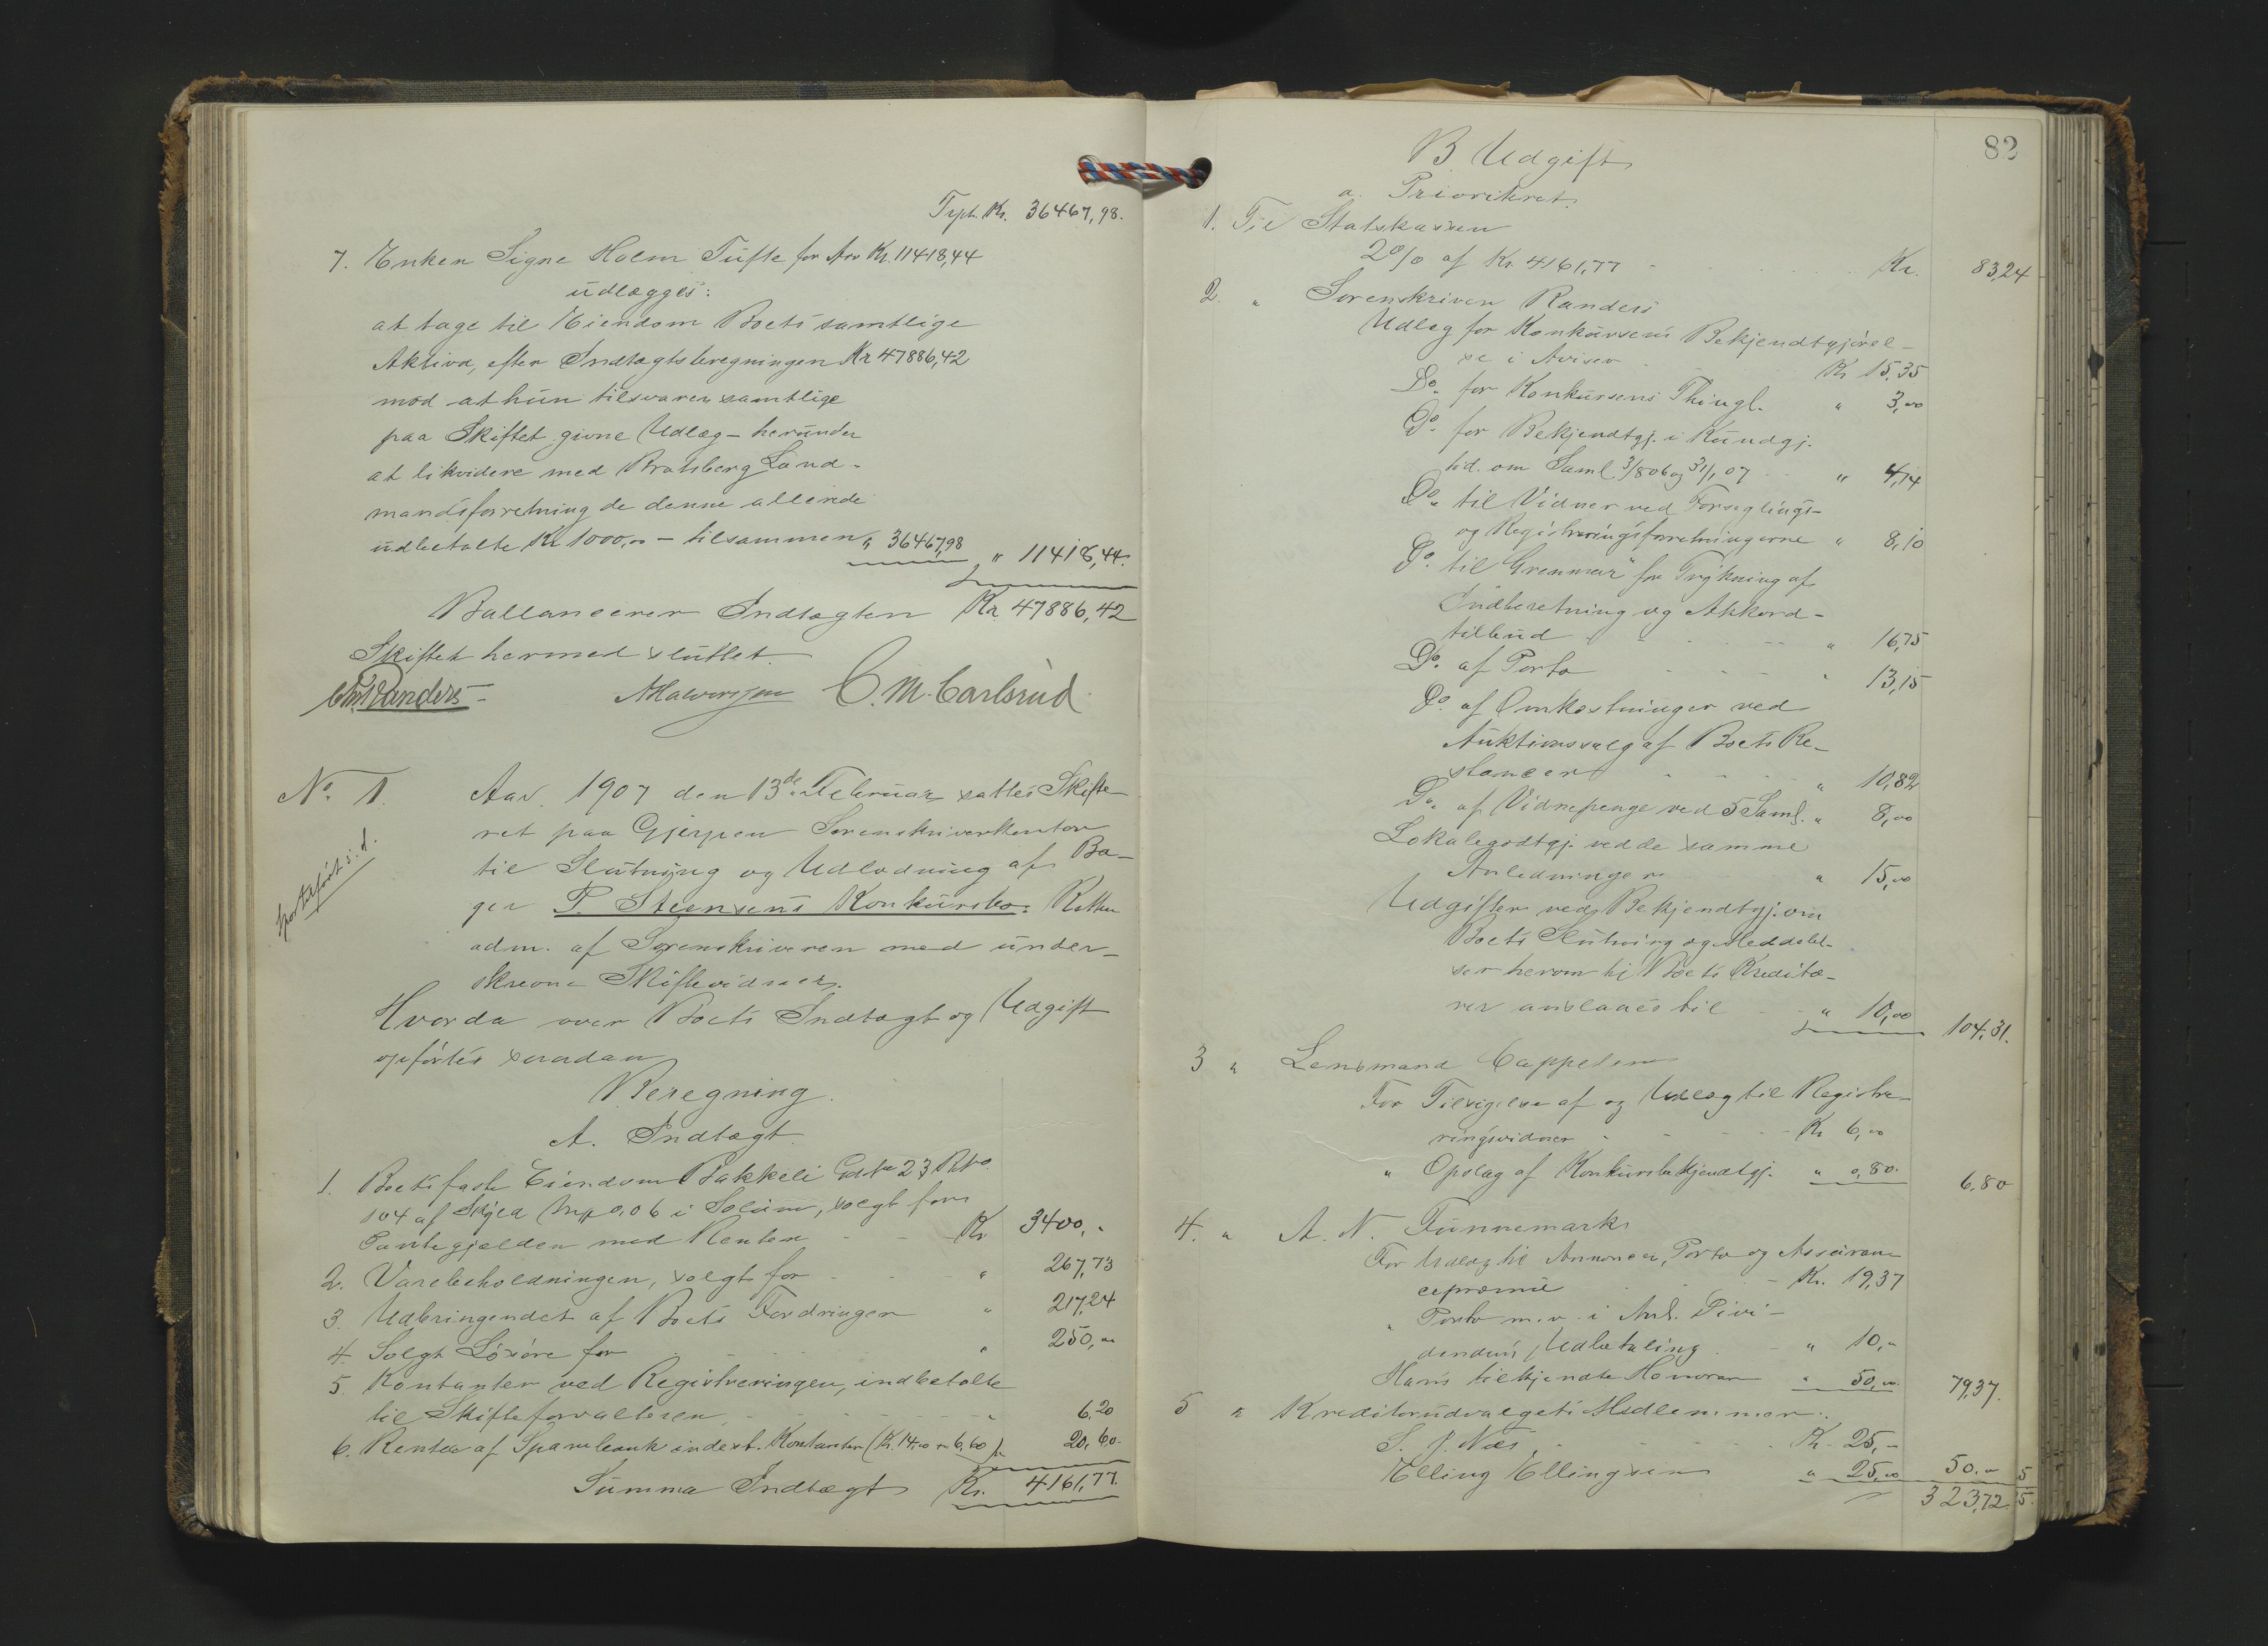 Trpt. Kr. 36467,98.
7. Enken Signe Holm Tufte for Arv Kr. 11418,44
udlægges:
at tage til Eiendom Boets samtlige
Aktiva, efter Indtægtsberegningen Kr 47886,42
mod at hun tilsvarer samtlige
paa Skiftet givne Udlæg – herunder
at likvidere med Bratsberg Land-
mandsforretning de denne allerede
udbetalte Kr 1000,00 – tilsammen " 36467,98
" 11418,44.
Ballancerer Indtægten Kr 47886,42
Skiftet hermed sluttet.
Chr. Randers – A Halvorsen C. M. Carlsrud.
No. 1.
Aar 1907 den 13de Februar sattes Skifte-
ret paa Gjerpen Sorenskriverkontor
til Slutning og Udlodning af Ba-
ger P. Steensens Konkursbo. Retten
adm. af Sorenskriveren med under-
skrevne Skiftevidner.
Hvorda over Boets Indtægt og Udgift
opførtes saadan
Beregning.
A. Indtægt.
1. Boets faste Eiendom Bakkeli Gdsn 23 Bno
104 af Skyld Mrk 0,06 i Solum, solgt for
Pantegjælden med Renter Kr 3400,-
2. Varebeholdningen, solgt for " 267,73
3. Udbringendet af Boets Fordringer " 217,24
4. Solgt Løsøre for " 250,00
5. Kontanter ved Registreringen, indbetalte
til Skifteforvalteren " 6,20
6. Renter af Sparebank indsat. Kontanter (Kr. 14,00 + 6,60) Kr 20,60.
Summa Indtægt Kr. 4161,77.
82
B. Udgift
a. Prioritert.
1. Til Statskassen
2% af Kr. 4161,77 Kr. 83,24
2. " Sorenskriver Randers
Udlæg for Konkursens Bekjendtgjørel-
se i Aviser Kr 15,35
Do. for Konkursens Thingl. " 3,00
Do. for Bekjendtgj. i Kundgj.
tid. om Saml 3/8 06 og 31/1 07 " 4,14
Do. til Vidner ved Forseglings-
og Registreringsforretningerne " 8,10
Do. til "Grenmar" for Trykning af
Indberetning og Akkord-
tilbud " 16,75
Do. af Porto " 13,15
Do. af Omkostninger ved
Auktionssalg af Boets Re-
stancer " 10,82
Do. af Vidnepenge ved 5 Saml. " 8,00
Lokalegodtgj. ved de samme
Anledninger " 15,00
Udgifter ved Bekjendtgj. om
Boets Slutning og Meddelel-
ser herom til Boets Kredito-
rer anslaaes til " 10,00 104,31.
3 " Lensmand Cappelen
For Tilsigelse af og Udlæg til Registre-
ringsvidner Kr 6,00
" Opslag af Konkursbekjendtgj. " 0,80. 6,80
4. " A. N. Tunnemark
For Udlæg til Annoncer, Porto og Assuran-
cepræmie Kr. 19,37
" Porto m.v. i Anl. Divi-
dendens Udbetaling " 10,-
Hans tilkjendte Honorar " 50,00. 79,37.
5 " Kreditorudvalgets Medlemmer:
S. J. Næs Kr. 25,-
Elling Ellingsen " 25,00 50,00
323,72